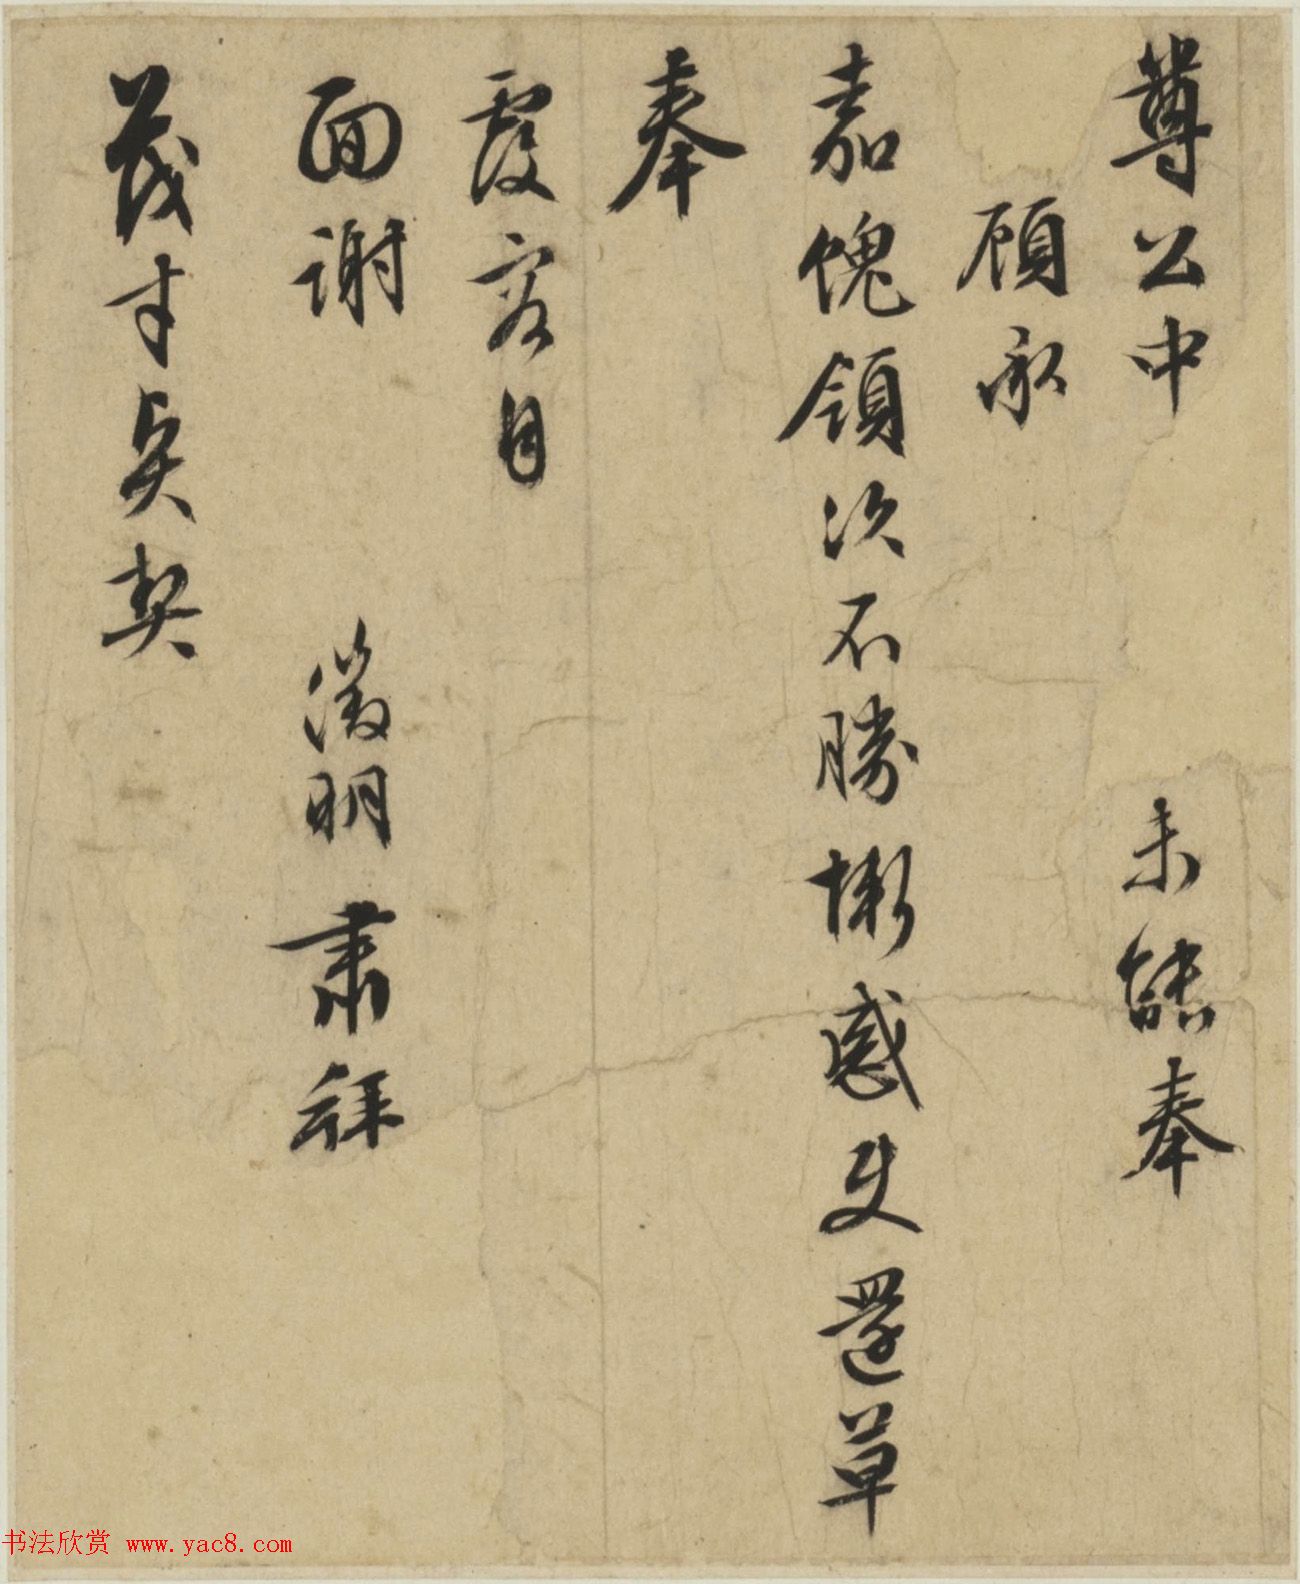 尊公中 未能奉
顾承
嘉愧领次不勝慚感使還草
奉
覆容日
面謝 徵明肅拜
茂才吳契
书法欣赏 www.yac8.com